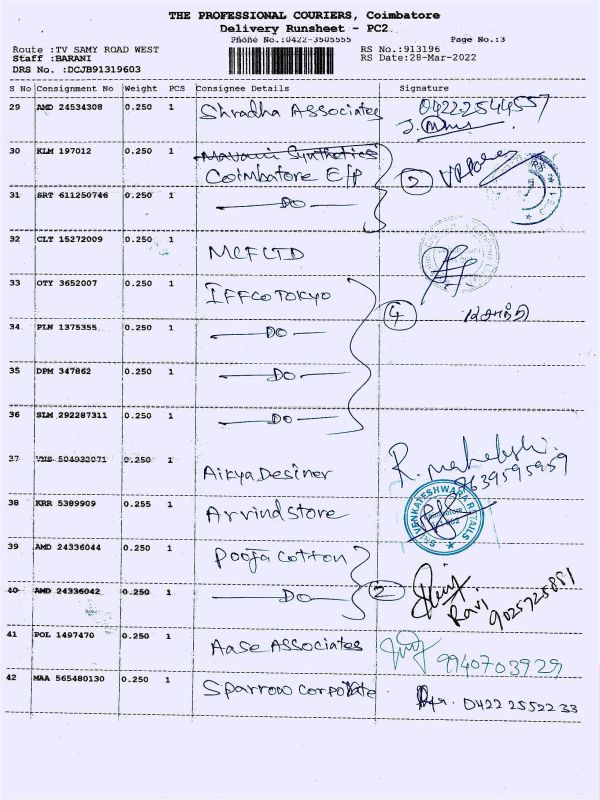 THE PROFESSIONAL COURIERS, Coimbatore
Delivery Runsheet - PC2
Phone No.:0422-3505555 Page No.:3
Route :TV SAMY ROAD WEST RS No.:913196
Staff :BARANI RS Date:28-Mar-2022
DRS No. :DCJB91319603
S No Consignment No Weight PCS Consignee Details Signature
29 AMD 24534308 0.250 1 Shradha Associates 0422 2544557
30 KLM 197012 0.250 1 Mavani Synthetics
Coimbatore E/p 2
31 SRT 611250746 0.250 1 DO
32 CLT 15272009 0.250 1 MCF LTD
33 OTY 3652007 0.250 1 IFFCO TOKYO 4
34 PLN 1375355 0.250 1 DO
35 DPM 347862 0.250 1 DO
36 SLM 292287311 0.250 1 DO
37 504932071 0.250 1 Aikya Desiner 9639595959
38 KRR 5389909 0.255 1 Arvind Store SRI VENKATESHWARA RETAILS
39 AMD 24336044 0.250 1 Pooja cotton
40 AMD 24336042 0.250 1 DO 2 Ravi 9025725881
41 POL 1497470 0.250 1 Aase Associates 9940703929
42 MAA 565480130 0.250 1 Sparrow Corporate 0422 2552233